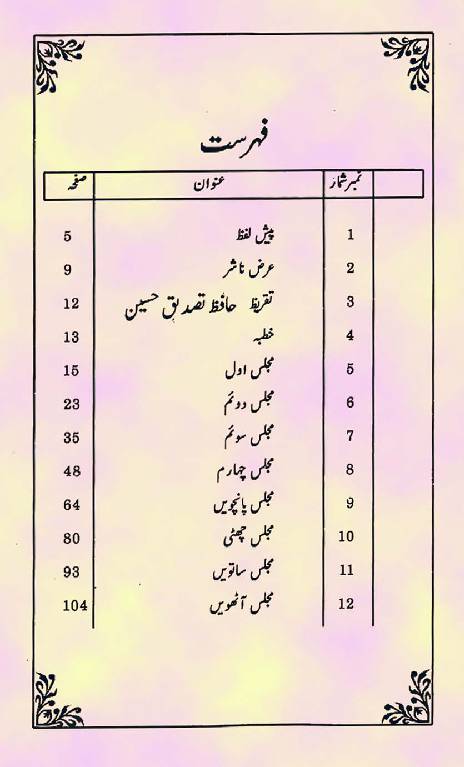 فہرست
نمبر شمار عنوان صفحہ
1 پیش لفظ 5
2 عرض ناشر 9
3 تقریظ حافظ تصدیق حسین 12
4 خطبہ 13
5 مجلس اول 15
6 مجلس دوئم 23
7 مجلس سوئم 35
8 مجلس چہارم 48
9 مجلس پانچویں 64
10 مجلس چھٹی 80
11 مجلس ساتویں 93
12 مجلس آٹھویں 104